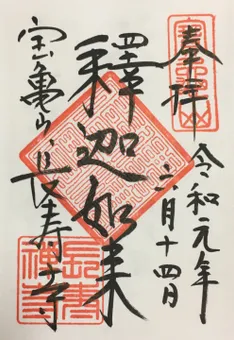 奉拝
令和元年
六月十四日
釋迦如来
宝亀山長寿寺
長寿
禅寺